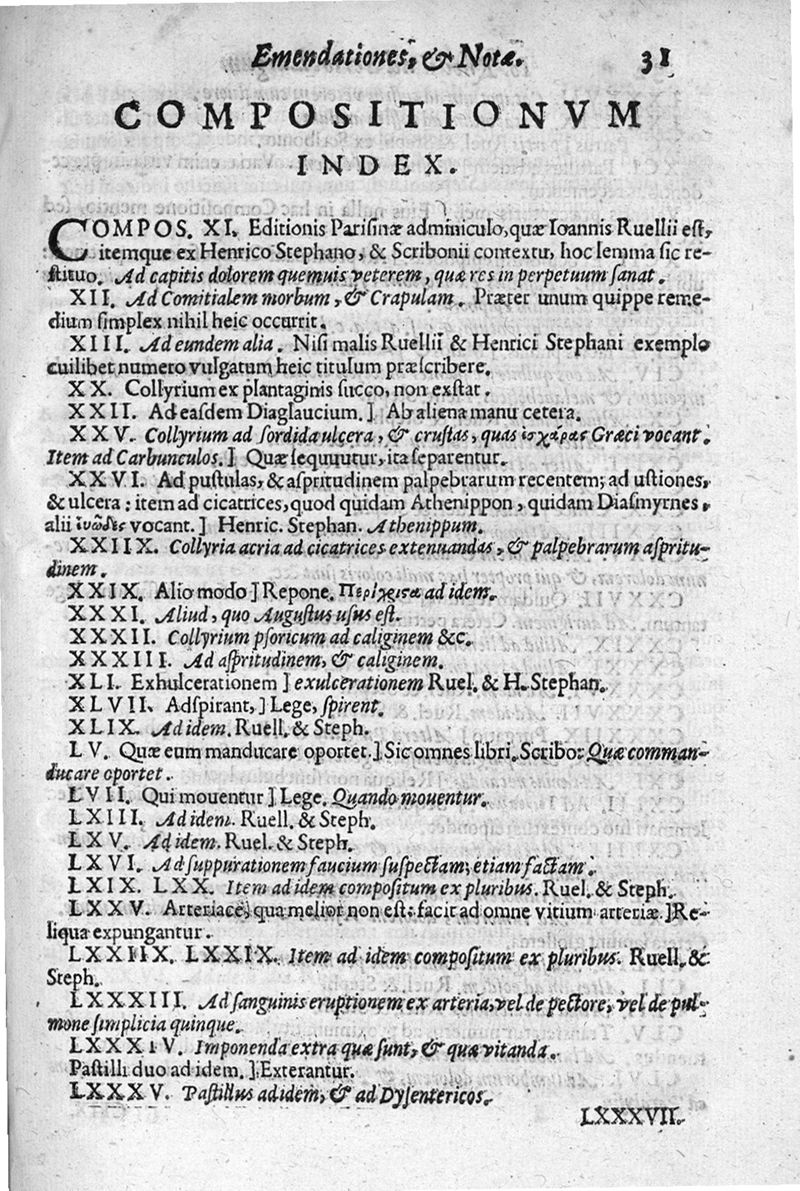 Emendationes, & Notæ. 31
COMPOSITIONVM
INDEX.
COMPOS. XI. Editionis Parisinæ adminiculo, quæ Ioannis Ruellii est,
itemque ex Henrico Stephano, & Scribonii contextu, hoc lemma sic re-
stituo. Ad capitis dolorem quemuis veterem, quæ res in perpetuum sanat.
XII. Ad Comitialem morbum, & Crapulam. Præter unum quippe reme-
dium simplex nihil heic occurrit.
XIII. Ad eundem alia. Nisi malis Ruellii & Henrici Stephani exemplo
cuilibet numero vulgatum heic titulum præscribere.
XX. Collyrium ex plantaginis succo, non exstat.
XXII. Ad easdem Diaglaucium.] Ab aliena manu cetera.
XXV. Collyrium ad sordida ulcera, & crustas, quas ἐσχάρας Græci vocant.
Item ad Carbunculos.] Quæ sequuutur, ita separentur.
XXVI. Ad pustulas, & aspritudinem palpebrarum recentem; ad ustiones,
& ulcera: item ad cicatrices, quod quidam Athenippon, quidam Diasmyrnes,
alii εὐῶδες vocant.] Henric. Stephan. Athenippum.
XXIIX. Collyria acria ad cicatrices extenuandas, & palpebrarum aspritu-
dinem.
XXIX. Alio modo] Repone. Περίχριστα ad idem.
XXXI. Aliud, quo Augustus usus est.
XXXII. Collyrium psoricum ad caliginem &c.
XXXIII. Ad aspritudinem, & caliginem.
XLI. Exhulcerationem] exulcerationem Ruel. & H. Stephan.
XLVII. Adspirant,] Lege, spirent.
XLIX. Ad idem. Ruell. & Steph.
LV. Quæ eum manducare oportet.] Sic omnes libri. Scribo: Quæ comman-
ducare oportet.
LVII. Qui mouentur] Lege. Quando mouentur.
LXIII. Ad idem. Ruell. & Steph.
LXV. Ad idem. Ruel. & Steph.
LXVI. Ad suppurationem faucium suspectam, etiam factam.
LXIX. LXX. Item ad idem compositum ex pluribus. Ruel. & Steph.
LXXV. Arteriace, qua melior non est: facit ad omne vitium arteriæ.] Re-
liqua expungantur.
LXXIIX. LXXIX. Item ad idem compositum ex pluribus. Ruell. &
Steph.
LXXXIII. Ad sanguinis eruptionem ex arteria, vel de pectore, vel de pul-
mone simplicia quinque.
LXXXIV. Imponenda extra quæ sunt, & quæ vitanda.
Pastilli duo ad idem.] Exterantur.
LXXXV. Pastillus ad idem, & ad Dysentericos.
LXXXVII.